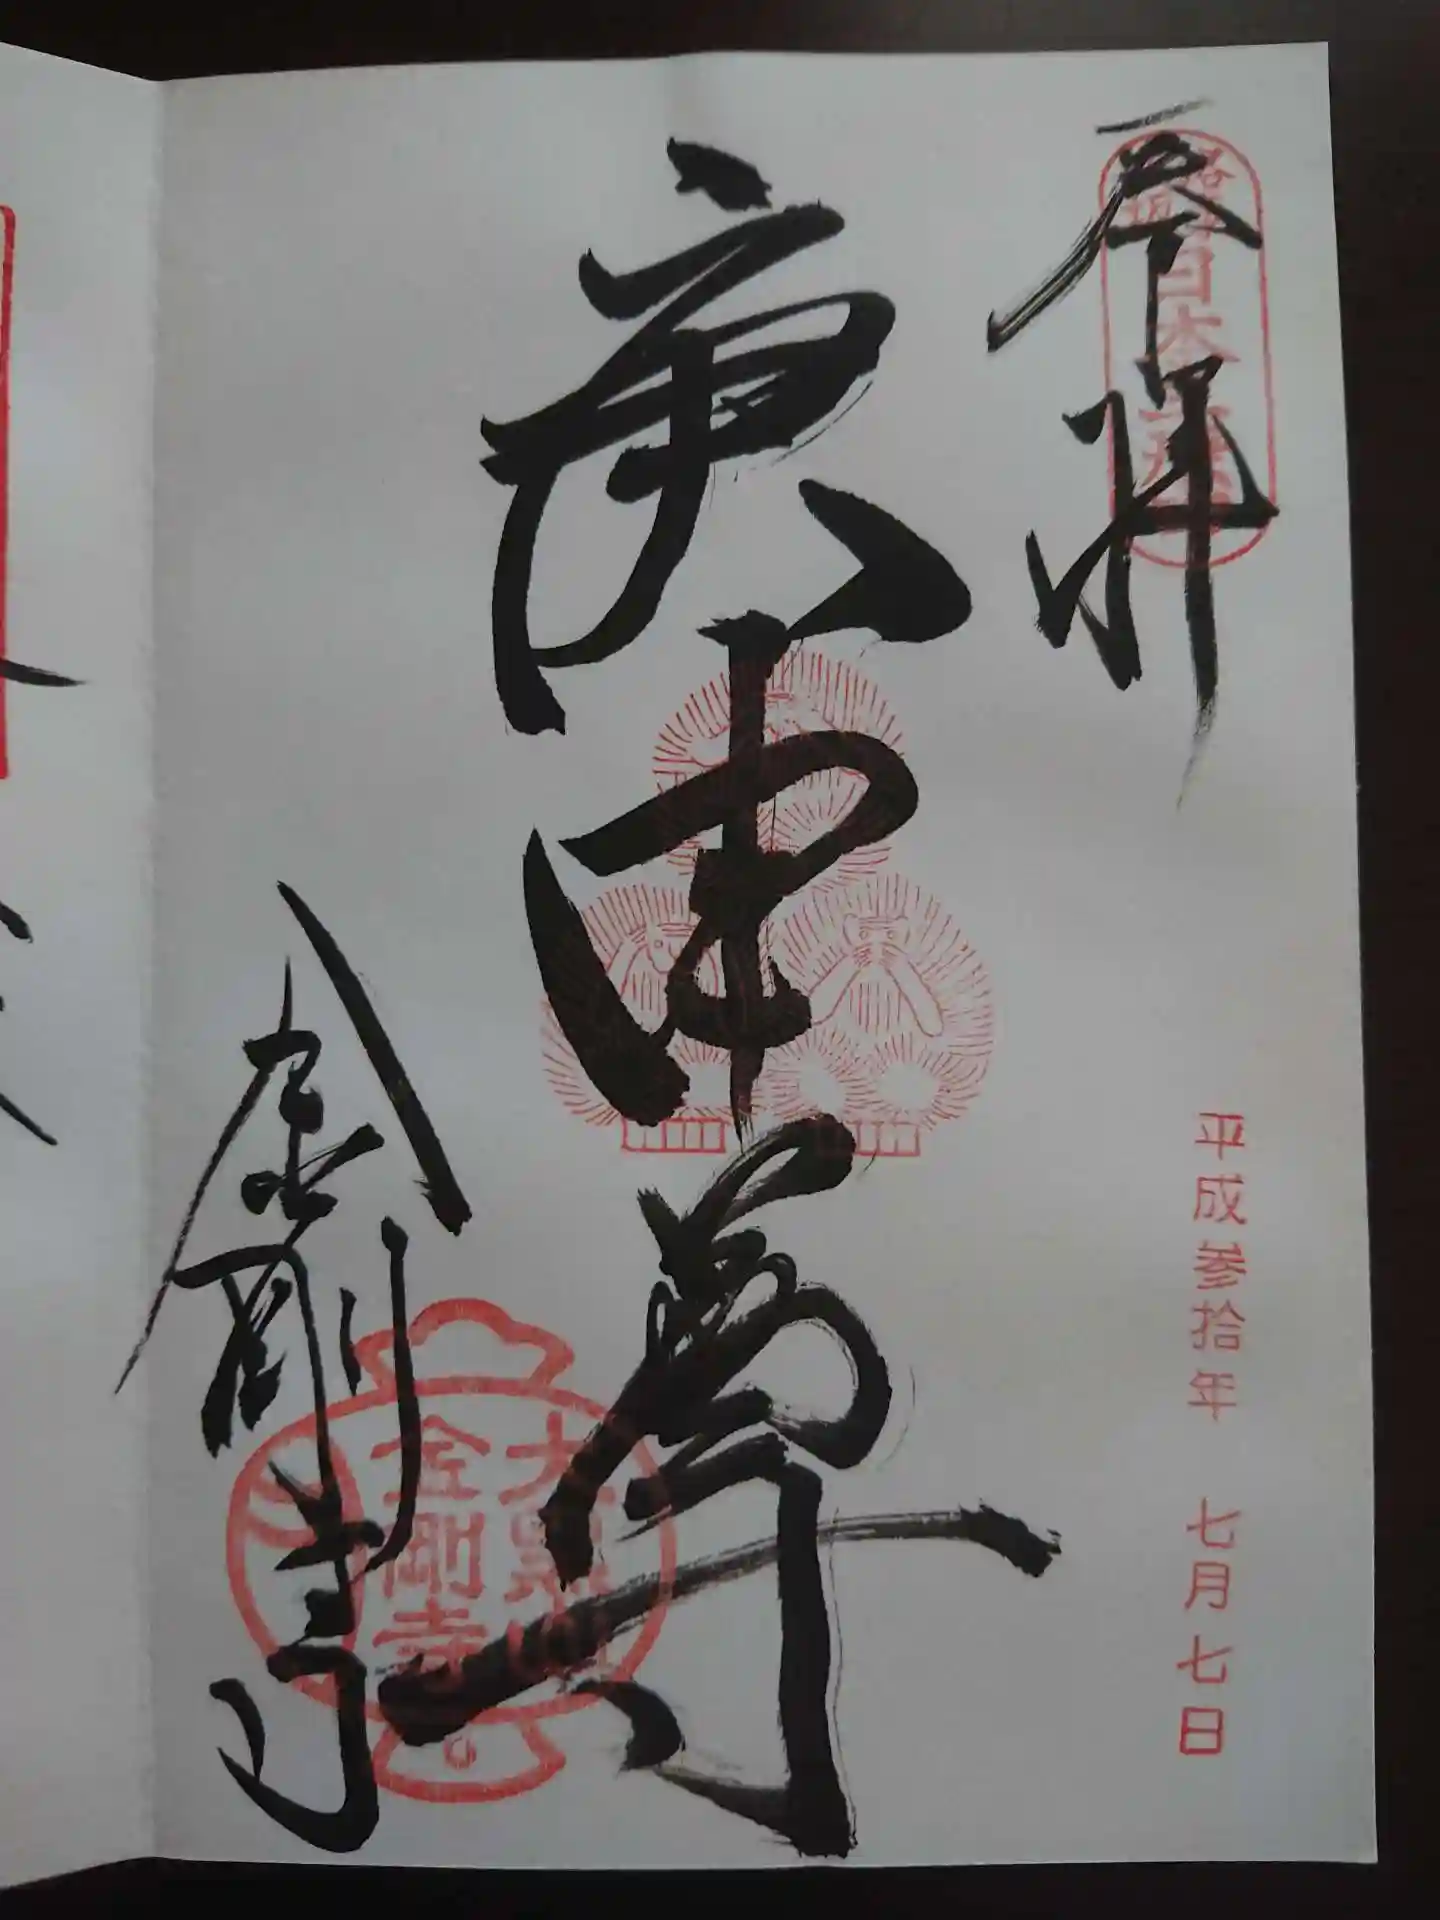 奉拝
日本三
庚申尊
平成参拾年 七月七日
金剛寺
大黒山
金剛寺